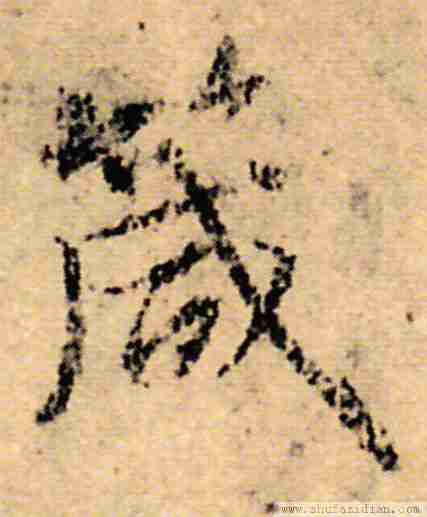 箴
www.shufazidian.com